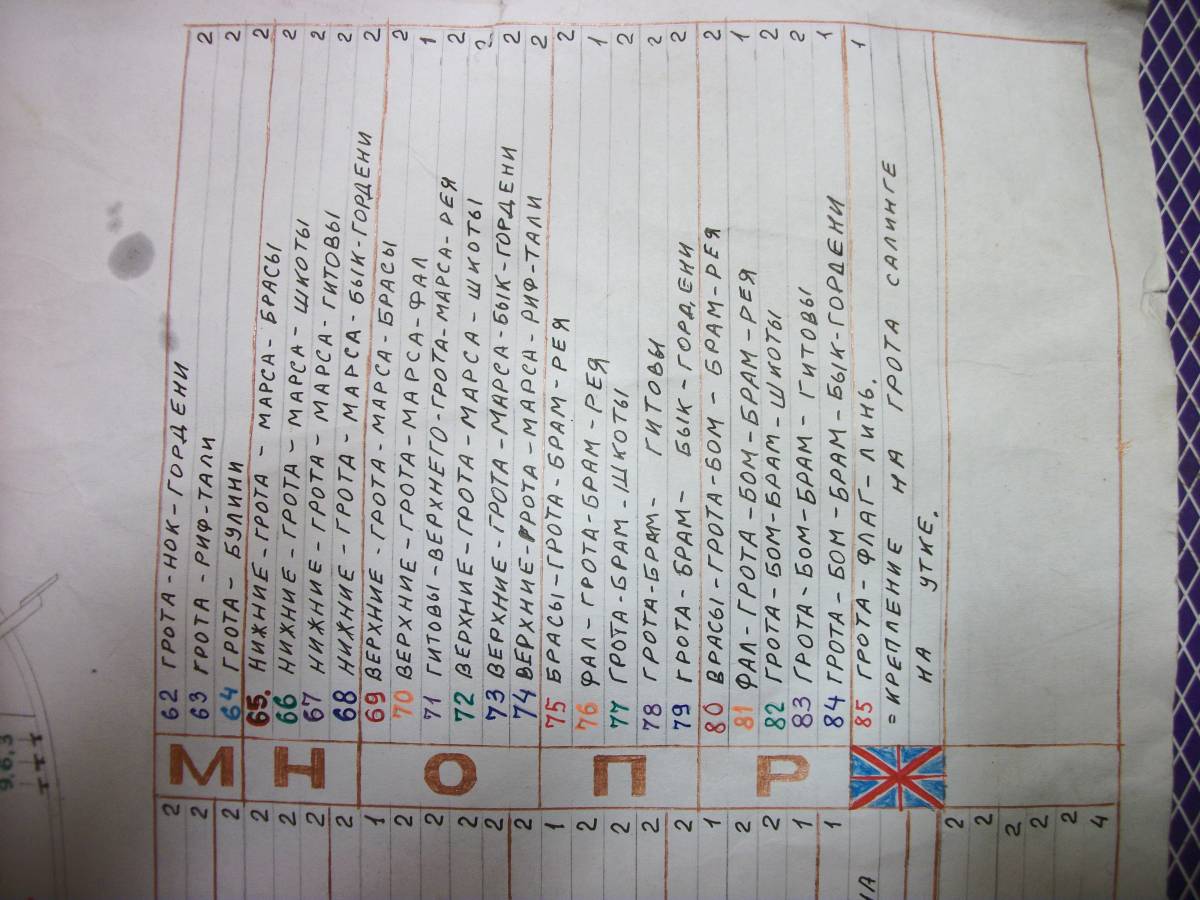 9,6,3
2 М 62 ГРОТА-НОК-ГОРДЕНИ 2
2 63 ГРОТА-РИФ-ТАЛИ 2
2 64 ГРОТА-БУЛИНИ 2
2 Н 65. НИЖНИЕ-ГРОТА-МАРСА-БРАСЫ 2
2 66 НИЖНИЕ-ГРОТА-МАРСА-ШКОТЫ 2
2 67 НИЖНИЕ-ГРОТА-МАРСА-ГИТОВЫ 2
2 68 НИЖНИЕ-ГРОТА-МАРСА-БЫК-ГОРДЕНИ 2
1 О 69 ВЕРХНИЕ-ГРОТА-МАРСА-БРАСЫ 2
2 70 ВЕРХНИЕ-ГРОТА-МАРСА-ФАЛ 1
2 71 ГИТОВЫ-ВЕРХНЕГО-ГРОТА-МАРСА-РЕЯ 2
2 72 ВЕРХНИЕ-ГРОТА-МАРСА-ШКОТЫ 2
2 73 ВЕРХНИЕ-ГРОТА-МАРСА-БЫК-ГОРДЕНИ 2
2 74 ВЕРХНИЕ-ГРОТА-МАРСА-РИФ-ТАЛИ 2
1 П 75 БРАСЫ-ГРОТА-БРАМ-РЕЯ 2
2 76 ФАЛ-ГРОТА-БРАМ-РЕЯ 1
2 77 ГРОТА-БРАМ-ШКОТЫ 2
2 78 ГРОТА-БРАМ- ГИТОВЫ 2
2 79 ГРОТА-БРАМ- БЫК-ГОРДЕНИ 2
1 Р 80 БРАСЫ-ГРОТА-БОМ-БРАМ-РЕЯ 2
2 81 ФАЛ-ГРОТА-БОМ-БРАМ-РЕЯ 1
2 82 ГРОТА-БОМ-БРАМ-ШКОТЫ 2
1 83 ГРОТА-БОМ-БРАМ-ГИТОВЫ 2
1 84 ГРОТА-БОМ-БРАМ-БЫК-ГОРДЕНИ 1
85 ГРОТА-ФЛАГ-ЛИНЬ. 1
=КРЕПЛЕНИЕ НА ГРОТА САЛИНГЕ
НА УТКЕ.
2
2
2
2
2
4